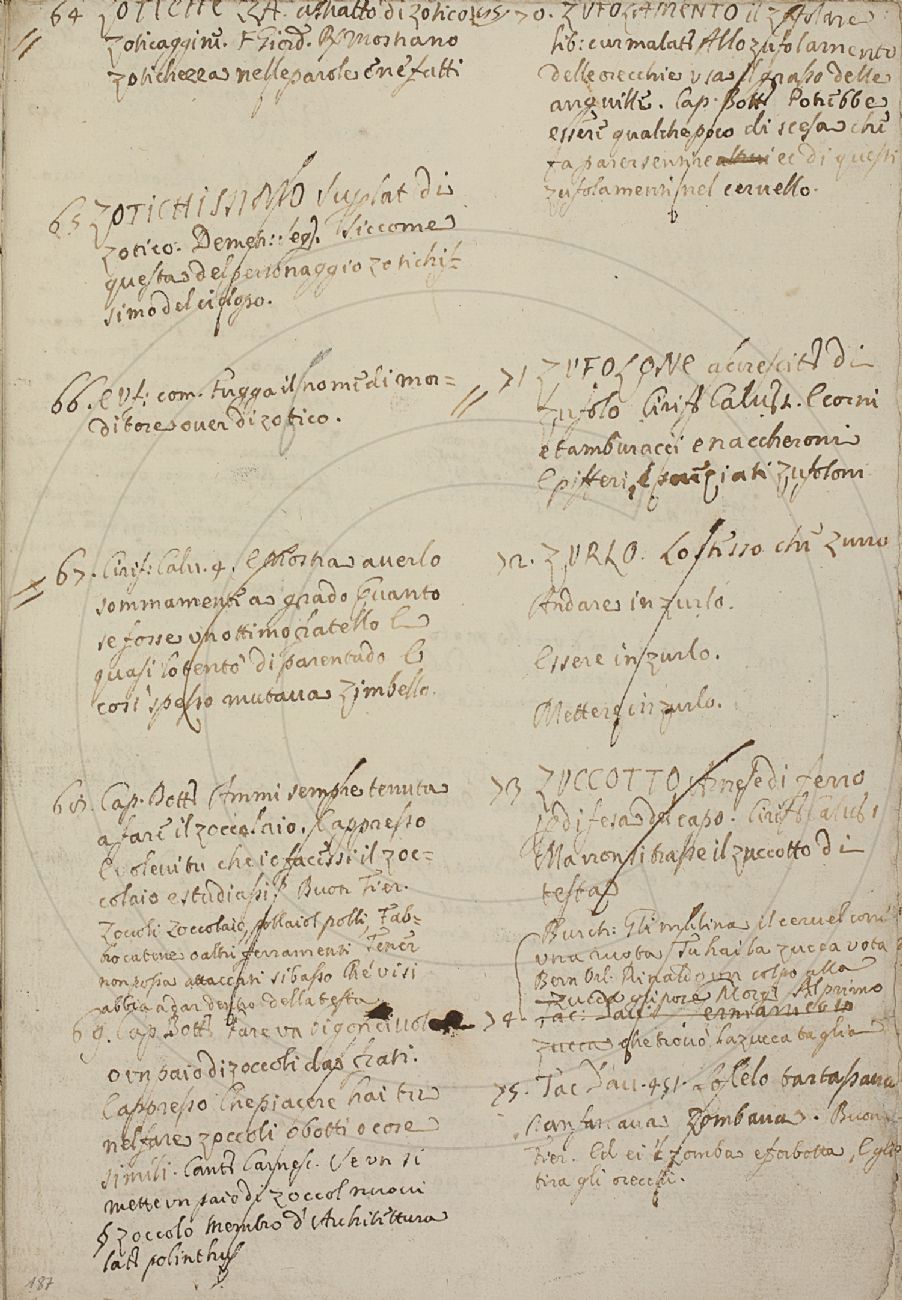 64 ZOTICHEZZA. astratto di zotico
Zoticaggine. F Giord. R. Mostrano
zotichezza nelle parole e ne fatti
65 ZOTICHISSIMO Suplat di
zotico. Demetr: Seg. Siccome
questa del personaggio zotichis=
simo del ciclopo.
66. e Vf: com. Fugga il nome di mor=
ditore over di zotico.
67. Cirif: Calu. 4. E mostra averlo
sommamente a grado Quanto
se fosse un ottimo fratello E
quasi lo tentò di parentado E
così spesso mutava Zimbello.
68. Cap. Bott Ammi sempre tenuta
a fare il zoccolaio. E appresso
E volevi tu che io facessi il zoc=
colaio e studiassi? Buon Fier.
Zoccoli Zoccolaio, pollaiol polli, Fab=
bro catene o altri ferramenti, Tener
non possa attaccati sì basso Che vi si
abbia a dar dentro della testa
69. Cap. Bott Fare un bigonciuolo
o un paio di zoccoli da frati.
E appresso Che piacere hai tu
nel fare zoccoli o botti o cose
simili. Cant Carnesc. Se un si
mette un paio di zoccol nuovi
§ Zoccolo membro d'Architettura
lat plinthus
70. ZUFOLAMENTO il zufolare
lib: cur malatt Allo zufolamento
delle orecchie usa il grasso delle
anguille. Cap. Bott Potrebbe
essere qualche poco di scesa che
fa parer sentire ec di questi
zufolamenti nel cervello.
71 ZUFOLONE accrescit di
zufolo Ciriff Calu. E corni
e tamburacci e naccheroni
E pifferi, e zufoloni
72. ZURLO. Lo stesso che Zurro
Andare in zurlo.
Essere in zurlo.
Mettere in zurlo.
73 ZUCCOTTO Arnese di ferro
p difesa del capo. Ciriff Calu 1
Ma non si trasse il zuccotto di
testa
Burch: Gli mulina il cervel com
una ruota Tu hai la zucca vota
Bern Orl: Rinaldo un colpo alla
zucca Morg. Al primo
74. Tac:
zucca che trovò, la zucca taglia
75. Tac Dav. 451. tartassava
Zombava. Buon
Fier. Ed ei 'l zomba e forbotta, E gli
tira gli orecchi.
187